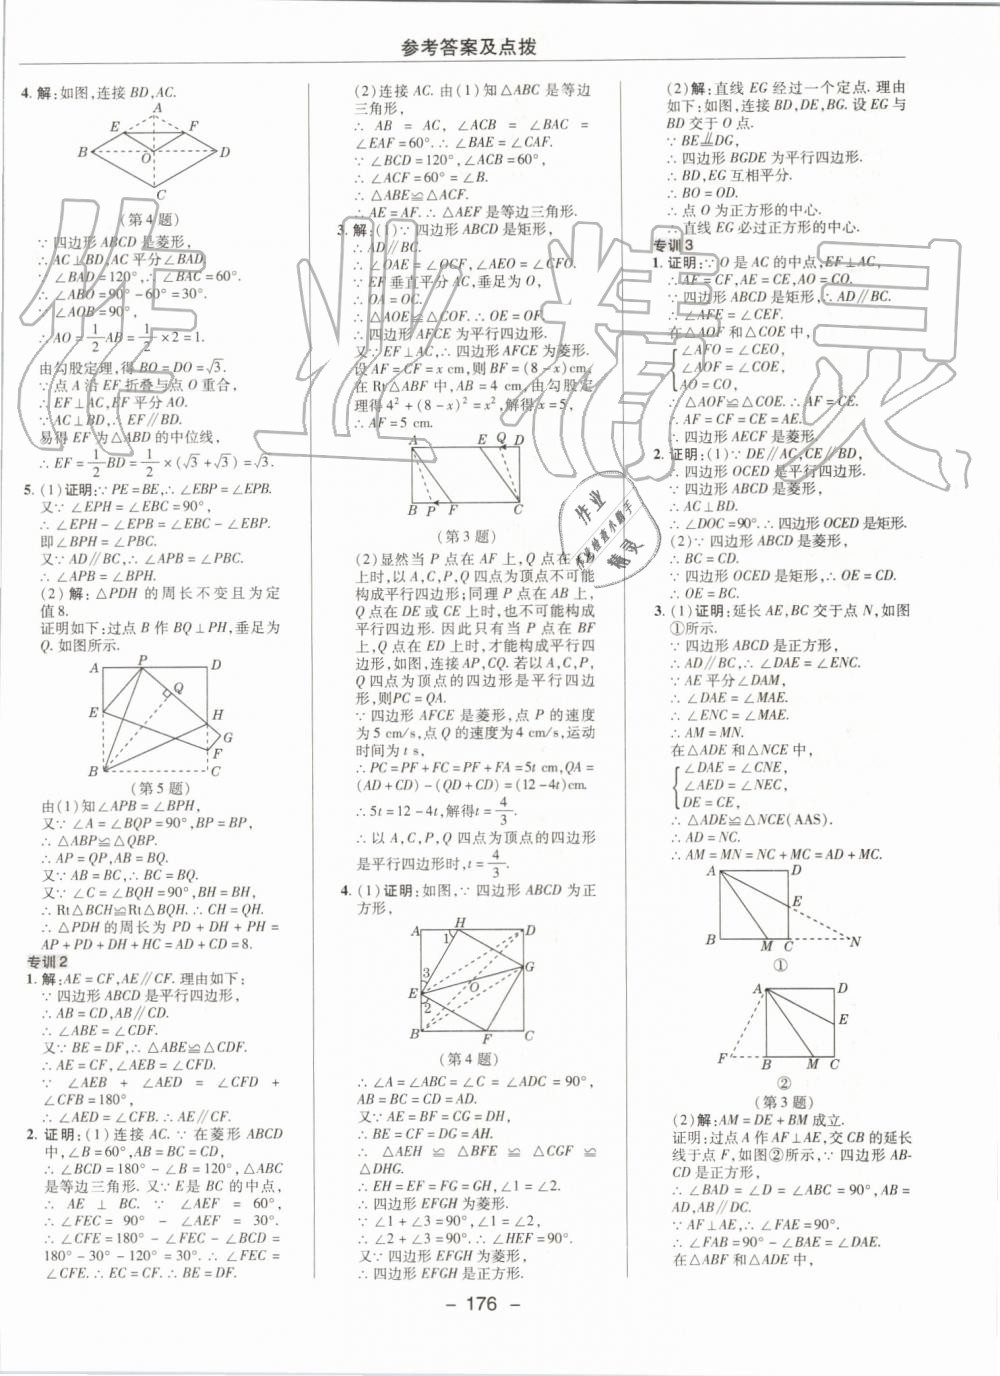 参考答案及点拨
4. 解:如图,连接 BD,AC.
A
E F
B O D
C
(第4题)
∵ 四边形 ABCD 是菱形,
∴ AC⊥BD,AC 平分∠BAD.
∵ ∠BAD=120°,∴ ∠BAC=60°.
∴ ∠ABO=90°-60°=30°.
∵ ∠AOB=90°,
∴ AO=1/2 AB=1/2×2=1.
由勾股定理,得 BO=DO=√3.
∵ 点 A 沿 EF 折叠与点 O 重合,
∴ EF⊥AC,EF 平分 AO.
∵ AC⊥BD,∴ EF∥BD.
易得 EF 为△ABD 的中位线,
∴ EF=1/2 BD=1/2×(√3+√3)=√3.
5. (1)证明:∵ PE=BE,∴ ∠EBP=∠EPB.
又∵ ∠EPH=∠EBC=90°,
∴ ∠EPH-∠EPB=∠EBC-∠EBP.
即∠BPH=∠PBC.
又∵ AD∥BC,∴ ∠APB=∠PBC.
∴ ∠APB=∠BPH.
(2) 解:△PDH 的周长不变且为定
值 8.
证明如下:过点 B 作 BQ⊥PH,垂足为
Q. 如图所示.
A P D
Q
E H
G
F
B C
(第5题)
由(1)知∠APB=∠BPH,
又∵ ∠A=∠BQP=90°,BP=BP,
∴ △ABP≌△QBP.
∴ AP=QP,AB=BQ.
又∵ AB=BC,∴ BC=BQ.
又∵ ∠C=∠BQH=90°,BH=BH,
∴ Rt△BCH≌Rt△BQH. ∴ CH=QH.
∴ △PDH 的周长为 PD+DH+PH=
AP+PD+DH+HC=AD+CD=8.
专训2
1. 解:AE=CF,AE∥CF. 理由如下:
∵ 四边形 ABCD 是平行四边形,
∴ AB=CD,AB∥CD.
∴ ∠ABE=∠CDF.
又∵ BE=DF,∴ △ABE≌△CDF.
∴ AE=CF,∠AEB=∠CFD.
∵ ∠AEB+∠AED=∠CFD+
∠CFB=180°,
∴ ∠AED=∠CFB. ∴ AE∥CF.
2. 证明:(1)连接 AC. ∵ 在菱形 ABCD
中,∠B=60°,AB=BC=CD,
∴ ∠BCD=180°-∠B=120°,△ABC
是等边三角形. 又∵ E 是 BC 的中点,
∴ AE⊥BC. ∵ ∠AEF=60°,
∴ ∠FEC=90°-∠AEF=30°.
∴ ∠CFE=180°-∠FEC-∠BCD=
180°-30°-120°=30°. ∴ ∠FEC=
∠CFE. ∴ EC=CF. ∴ BE=DF.
(2)连接 AC. 由(1)知△ABC 是等边
三角形,
∴ AB=AC,∠ACB=∠BAC=
∠EAF=60°. ∴ ∠BAE=∠CAF.
∵ ∠BCD=120°,∠ACB=60°,
∴ ∠ACF=60°=∠B.
∴ △ABE≌△ACF.
∴ AE=AF. ∴ △AEF 是等边三角形.
3. 解:(1)∵ 四边形 ABCD 是矩形,
∴ AD∥BC.
∴ ∠OAE=∠OCF,∠AEO=∠CFO.
∵ EF 垂直平分 AC,垂足为 O,
∴ OA=OC.
∴ △AOE≌△COF. ∴ OE=OF.
∴ 四边形 AFCE 为平行四边形.
又∵ EF⊥AC,∴ 四边形 AFCE 为菱形.
设 AF=CF=x cm,则 BF=(8-x)cm,
在 Rt△ABF 中,AB=4 cm,由勾股定
理得 4²+(8-x)²=x²,解得 x=5,
∴ AF=5 cm.
A E Q D
B P F C
(第3题)
(2)显然当 P 点在 AF 上,Q 点在 CD
上时,以 A,C,P,Q 四点为顶点不可能
构成平行四边形;同理 P 点在 AB 上,
Q 点在 DE 或 CE 上时,也不可能构成
平行四边形. 因此只有当 P 点在 BF
上,Q 点在 ED 上时,才能构成平行四
边形,如图,连接 AP,CQ. 若以 A,C,P,
Q 四点为顶点的四边形是平行四边
形,则 PC=QA.
∵ 四边形 AFCE 是菱形,点 P 的速度
为 5 cm/s,点 Q 的速度为 4 cm/s,运动
时间为 t s,
∴ PC=PF+FC=PF+FA=5t cm,QA=
(AD+CD)-(QD+CD)=(12-4t)cm.
∴ 5t=12-4t,解得 t=4/3.
∴ 以 A,C,P,Q 四点为顶点的四边形
是平行四边形时,t=4/3.
4. (1)证明:如图,∵ 四边形 ABCD 为正
方形,
A H D
1
3 G
E O
2
B F C
(第4题)
∴ ∠A=∠ABC=∠C=∠ADC=90°,
AB=BC=CD=AD.
又∵ AE=BF=CG=DH,
∴ BE=CF=DG=AH.
∴ △AEH≌△BFE≌△CGF≌
△DHG.
∴ EH=EF=FG=GH,∠1=∠2.
∴ 四边形 EFGH 为菱形.
∵ ∠1+∠3=90°,∠1=∠2,
∴ ∠2+∠3=90°. ∴ ∠HEF=90°.
又∵ 四边形 EFGH 为菱形,
∴ 四边形 EFGH 是正方形.
(2)解:直线 EG 经过一个定点. 理由
如下:如图,连接 BD,DE,BG. 设 EG 与
BD 交于 O 点.
∵ BE∥DG,
∴ 四边形 BGDE 为平行四边形.
∴ BD,EG 互相平分.
∴ BO=OD.
∴ 点 O 为正方形的中心.
∴ 直线 EG 必过正方形的中心.
专训3
1. 证明:∵ O 是 AC 的中点,EF⊥AC,
∴ AF=CF,AE=CE,AO=CO.
∵ 四边形 ABCD 是矩形,∴ AD∥BC.
∴ ∠AFE=∠CEF.
在△AOF 和△COE 中,
∠AFO=∠CEO,
∠AOF=∠COE,
AO=CO,
∴ △AOF≌△COE. ∴ AF=CE.
∴ AF=CF=CE=AE.
∴ 四边形 AECF 是菱形.
2. 证明:(1)∵ DE∥AC,CE∥BD,
∴ 四边形 OCED 是平行四边形.
∵ 四边形 ABCD 是菱形,
∴ AC⊥BD.
∴ ∠DOC=90°. ∴ 四边形 OCED 是矩形.
(2)∵ 四边形 ABCD 是菱形,
∴ BC=CD.
∵ 四边形 OCED 是矩形,∴ OE=CD.
∴ OE=BC.
3. (1)证明:延长 AE,BC 交于点 N,如图
①所示.
∵ 四边形 ABCD 是正方形,
∴ AD∥BC,∴ ∠DAE=∠ENC.
∵ AE 平分∠DAM,
∴ ∠DAE=∠MAE.
∴ ∠ENC=∠MAE.
∴ AM=MN.
在△ADE 和△NCE 中,
∠DAE=∠CNE,
∠AED=∠NEC,
DE=CE,
∴ △ADE≌△NCE(AAS).
∴ AD=NC.
∴ AM=MN=NC+MC=AD+MC.
A D
E
B M C N
①
A D
E
F B M C
②
(第3题)
(2)解:AM=DE+BM 成立.
证明:过点 A 作 AF⊥AE,交 CB 的延长
线于点 F,如图②所示,∵ 四边形 AB-
CD 是正方形,
∴ ∠BAD=∠D=∠ABC=90°,AB=
AD,AB∥DC.
∵ AF⊥AE,∴ ∠FAE=90°.
∴ ∠FAB=90°-∠BAE=∠DAE.
在△ABF 和△ADE 中,
- 176 -
作业精灵
作业
作业检查小助手
精灵